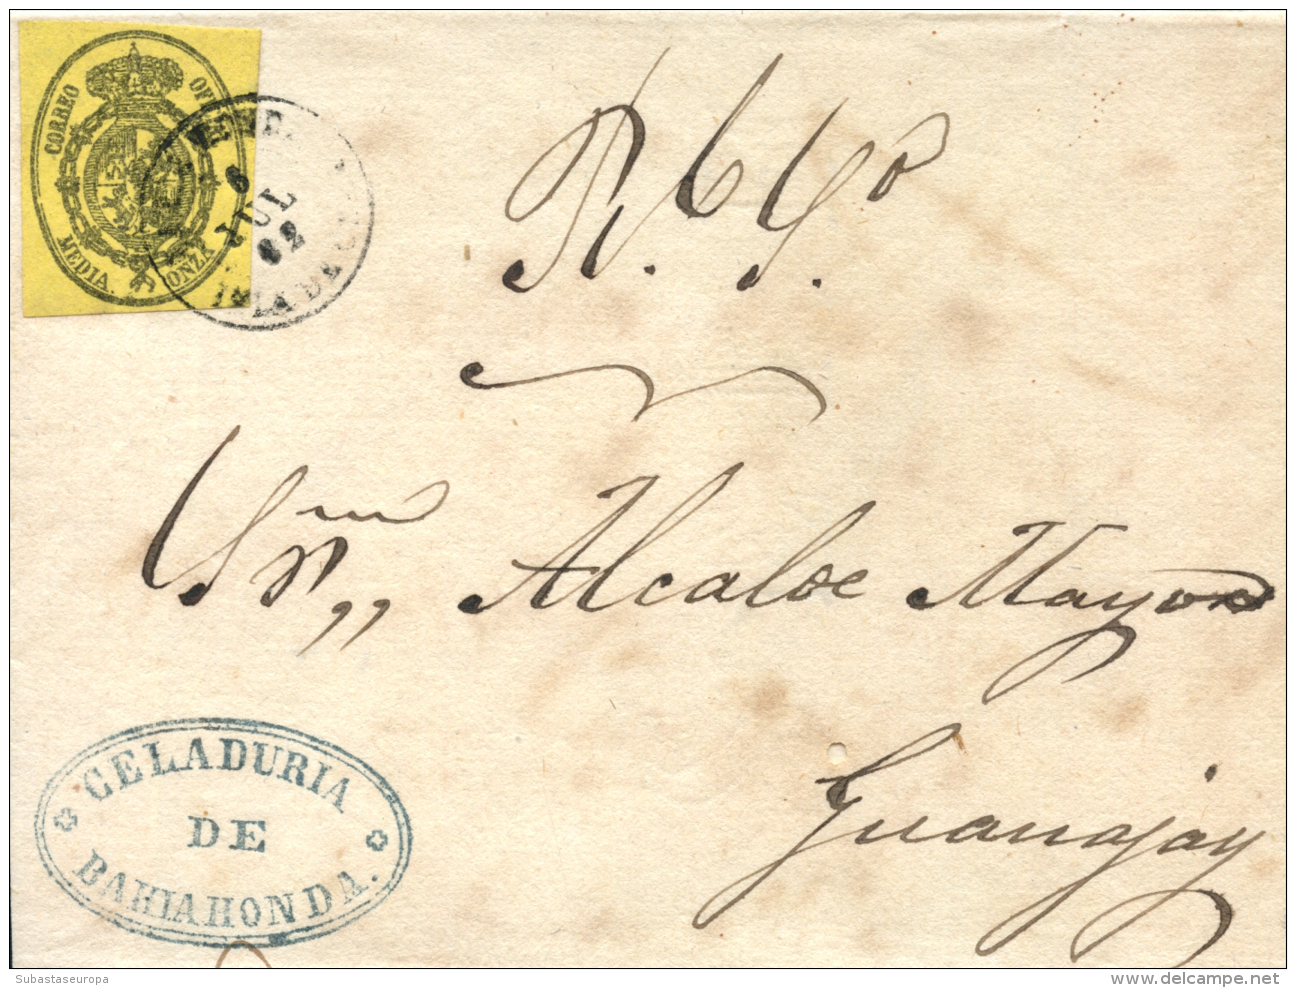 CORREO OF
MEDIA. ONZA
6
JUL
62
ISLA DE C
R. S.
Alcalde Mayor
Guanajay
CELADURIA
DE
BAHIAHONDA.
Subastaseuropa
www.delcampe.net